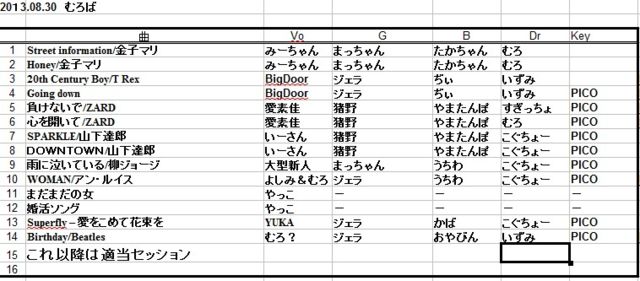 2013.08.30 むろば
曲 Vo G B Dr Key
1 Street information/金子マリ みーちゃん まっちゃん たかちゃん むろ
2 Honey/金子マリ みーちゃん まっちゃん たかちゃん むろ
3 20th Century Boy/T Rex BigDoor ジェラ ぢぃ いずみ
4 Going down BigDoor ジェラ ぢぃ いずみ PICO
5 負けないで/ZARD 愛素佳 猪野 やまたんぱ すぎっちょ PICO
6 心を開いて/ZARD 愛素佳 猪野 やまたんぱ むろ PICO
7 SPARKLE/山下達郎 いーさん 猪野 やまたんぱ こぐちょー PICO
8 DOWNTOWN/山下達郎 いーさん 猪野 やまたんぱ こぐちょー PICO
9 雨に泣いている/柳ジョージ 大型新人 まっちゃん うちわ こぐちょー PICO
10 WOMAN/アン・ルイス よしみ&むろ ジェラ うちわ こぐちょー PICO
11 まだまだの女 やっこ － － － －
12 婚活ソング やっこ － － － －
13 Superfly – 愛をこめて花束を YUKA ジェラ かば こぐちょー PICO
14 Birthday/Beatles むろ？ ジェラ おやびん いずみ PICO
15 これ以降は適当セッション
16